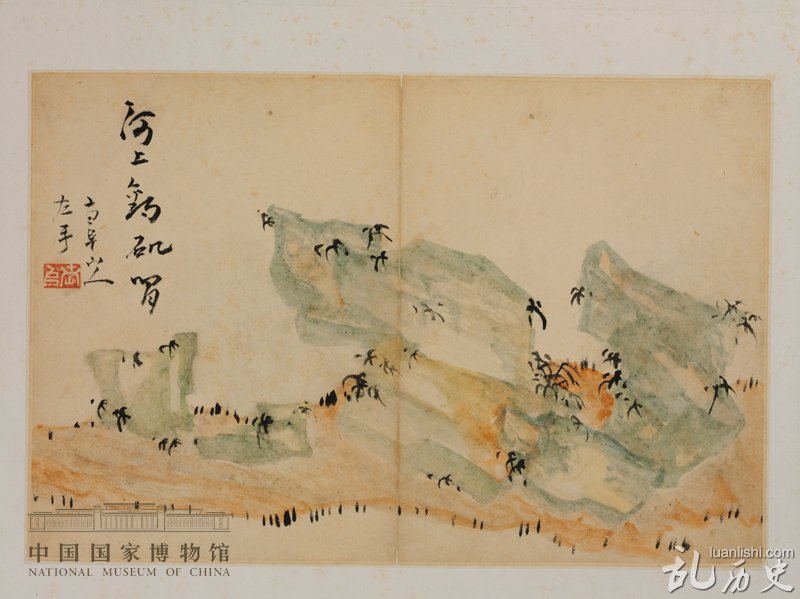 河上釣矶
南阜山人
左手
中国国家博物馆
NATIONAL MUSEUM OF CHINA
luanlishi.com
乱历史